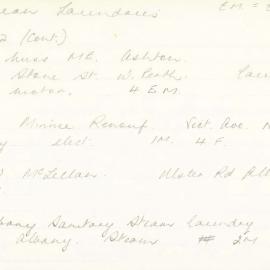 ean Laundries E M = 
2 (Cont.)
Miss M.E. Ashton.
Stone St. W. Perth. Laun
motor. 4 E M.
Minnie Renouf Vict. Ave.
elect. 1M. 4 F.
McLellan. Ulster Rd Alb
bany Sanitary Steam Laundry
Albany. Steam 2M